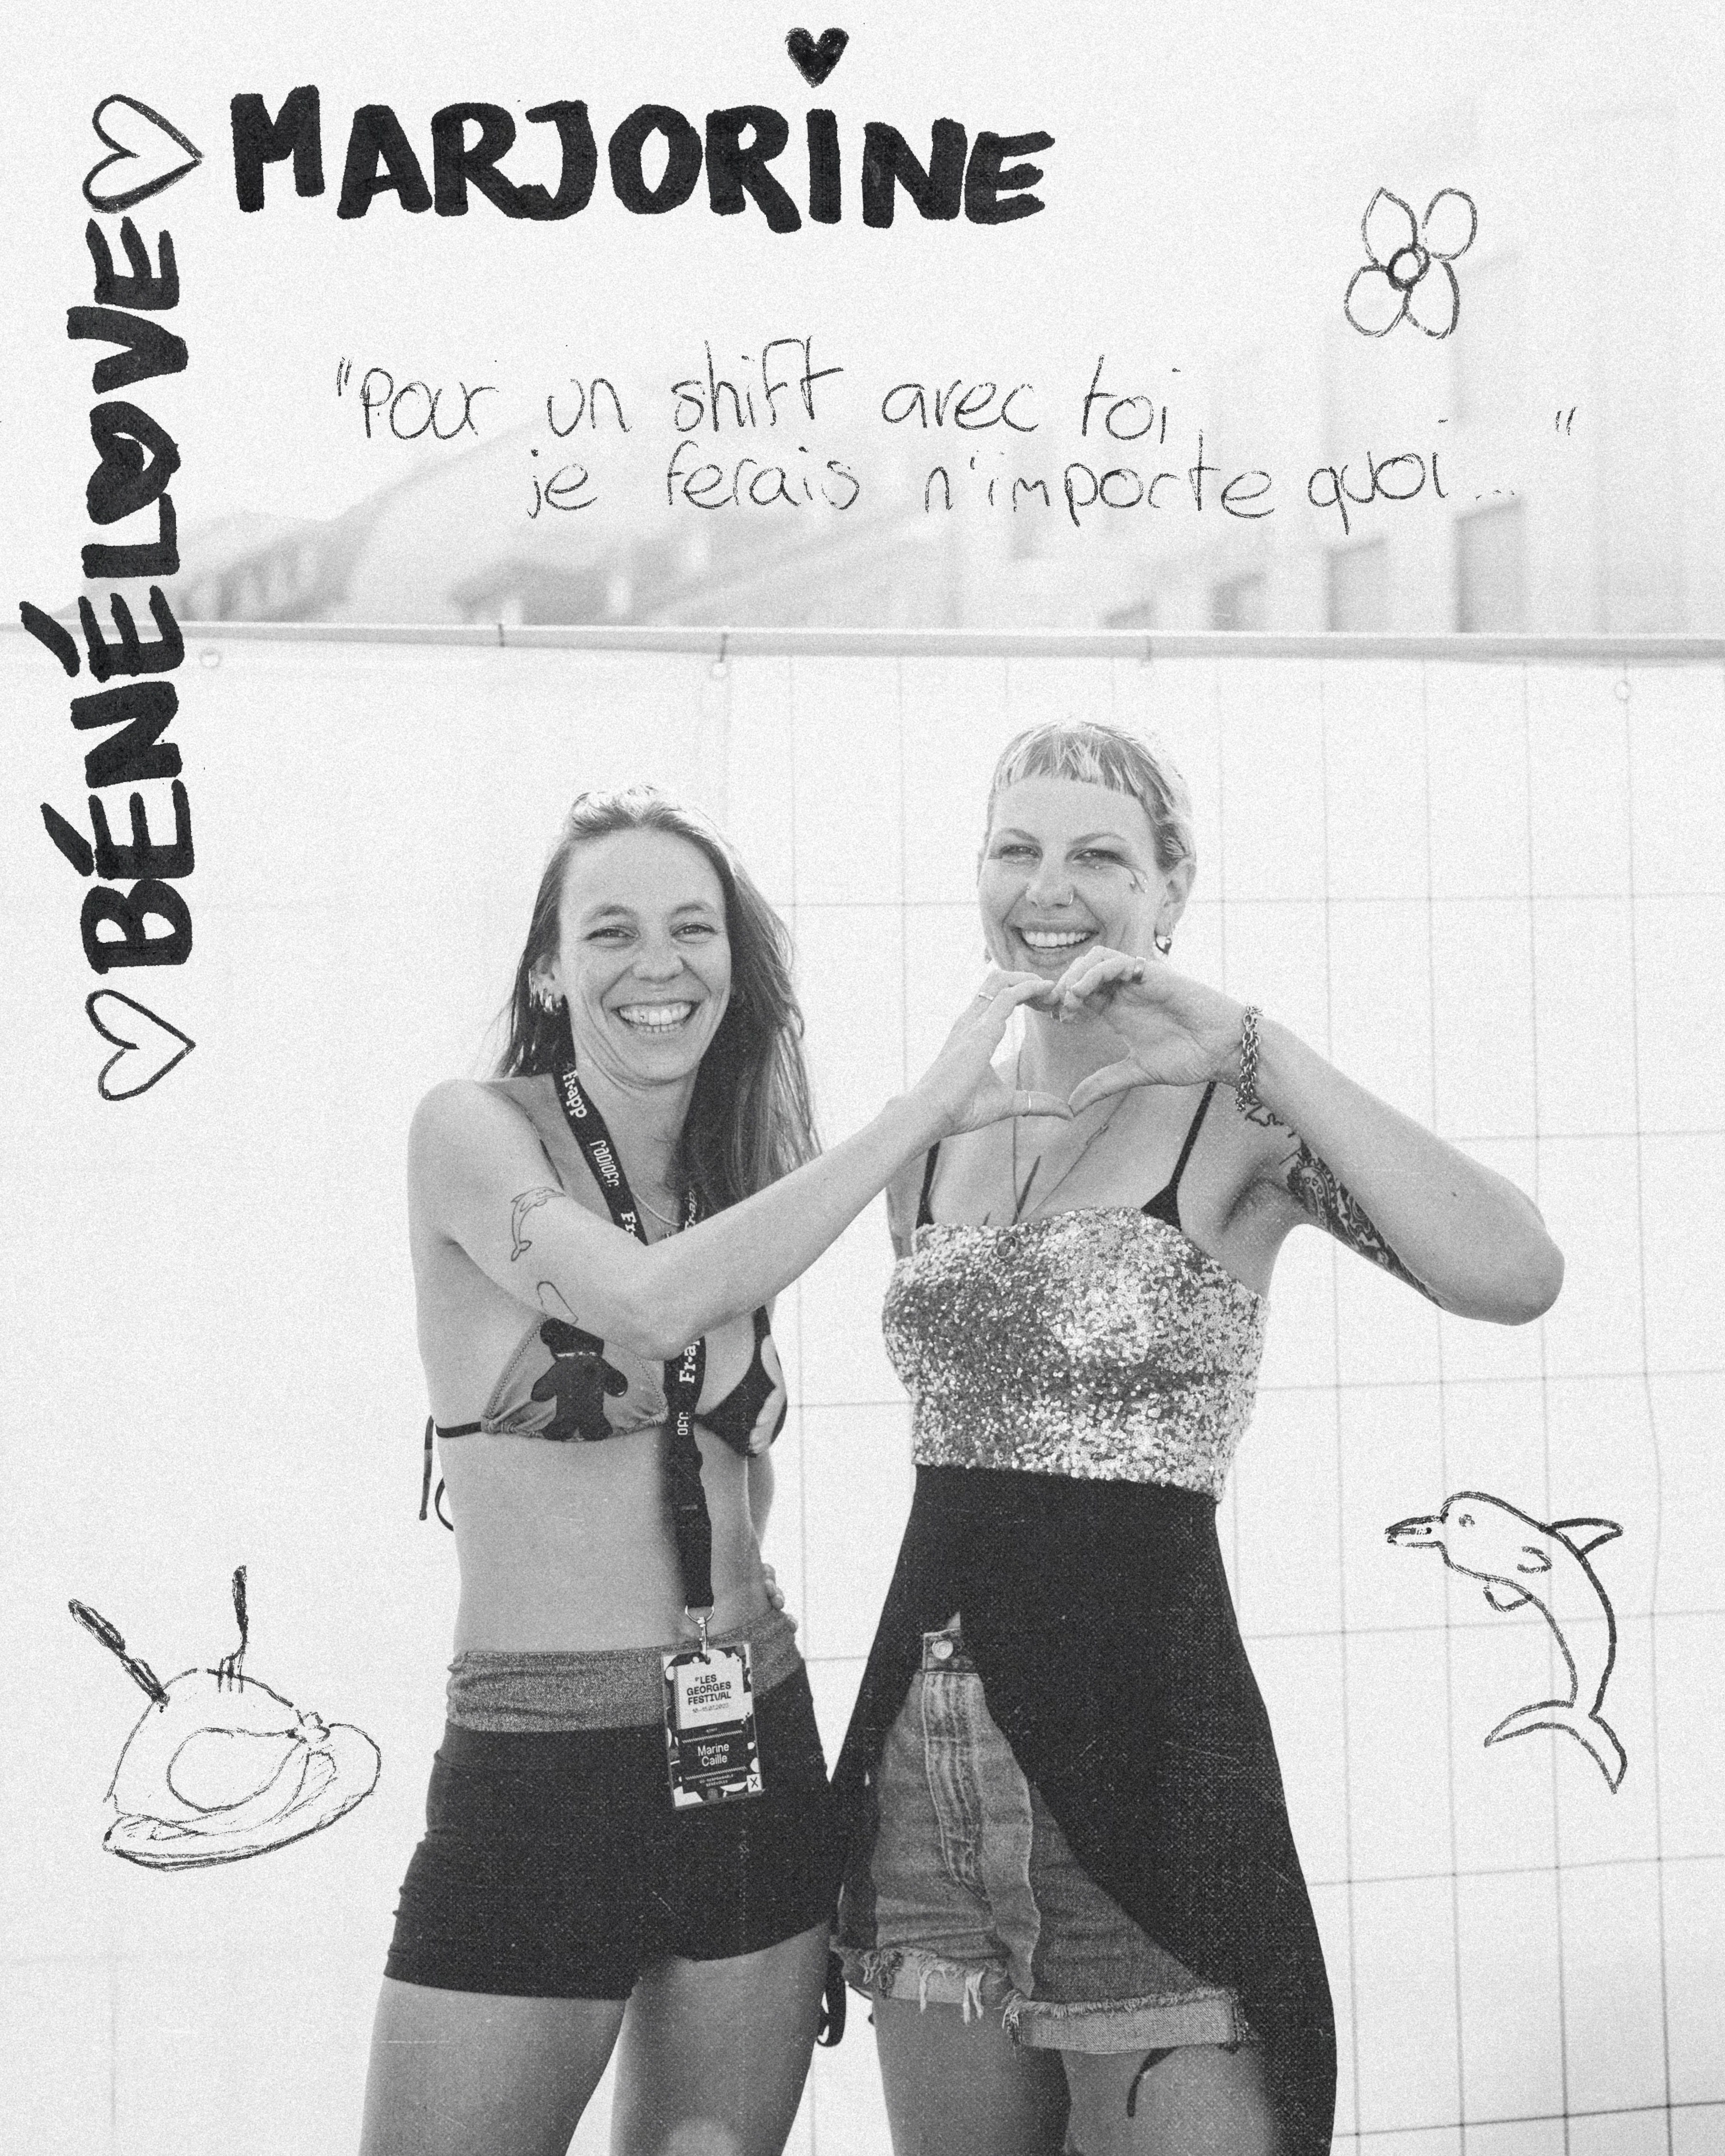 MARJORINE
BÉNÉLOVE
"Pour un shift avec toi
je ferais n'importe quoi... "
Fr-app
Fr-ap
LES
GEORGES
FESTIVAL
Marine
Caille
X